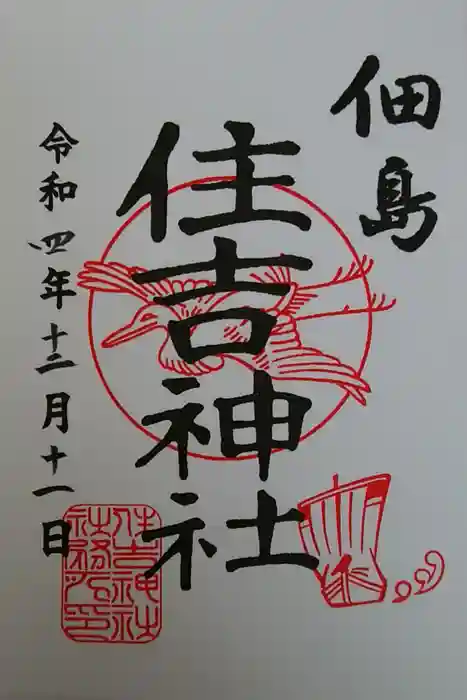 佃島
住吉神社
令和四年十二月十一日
住吉神社
社務所印